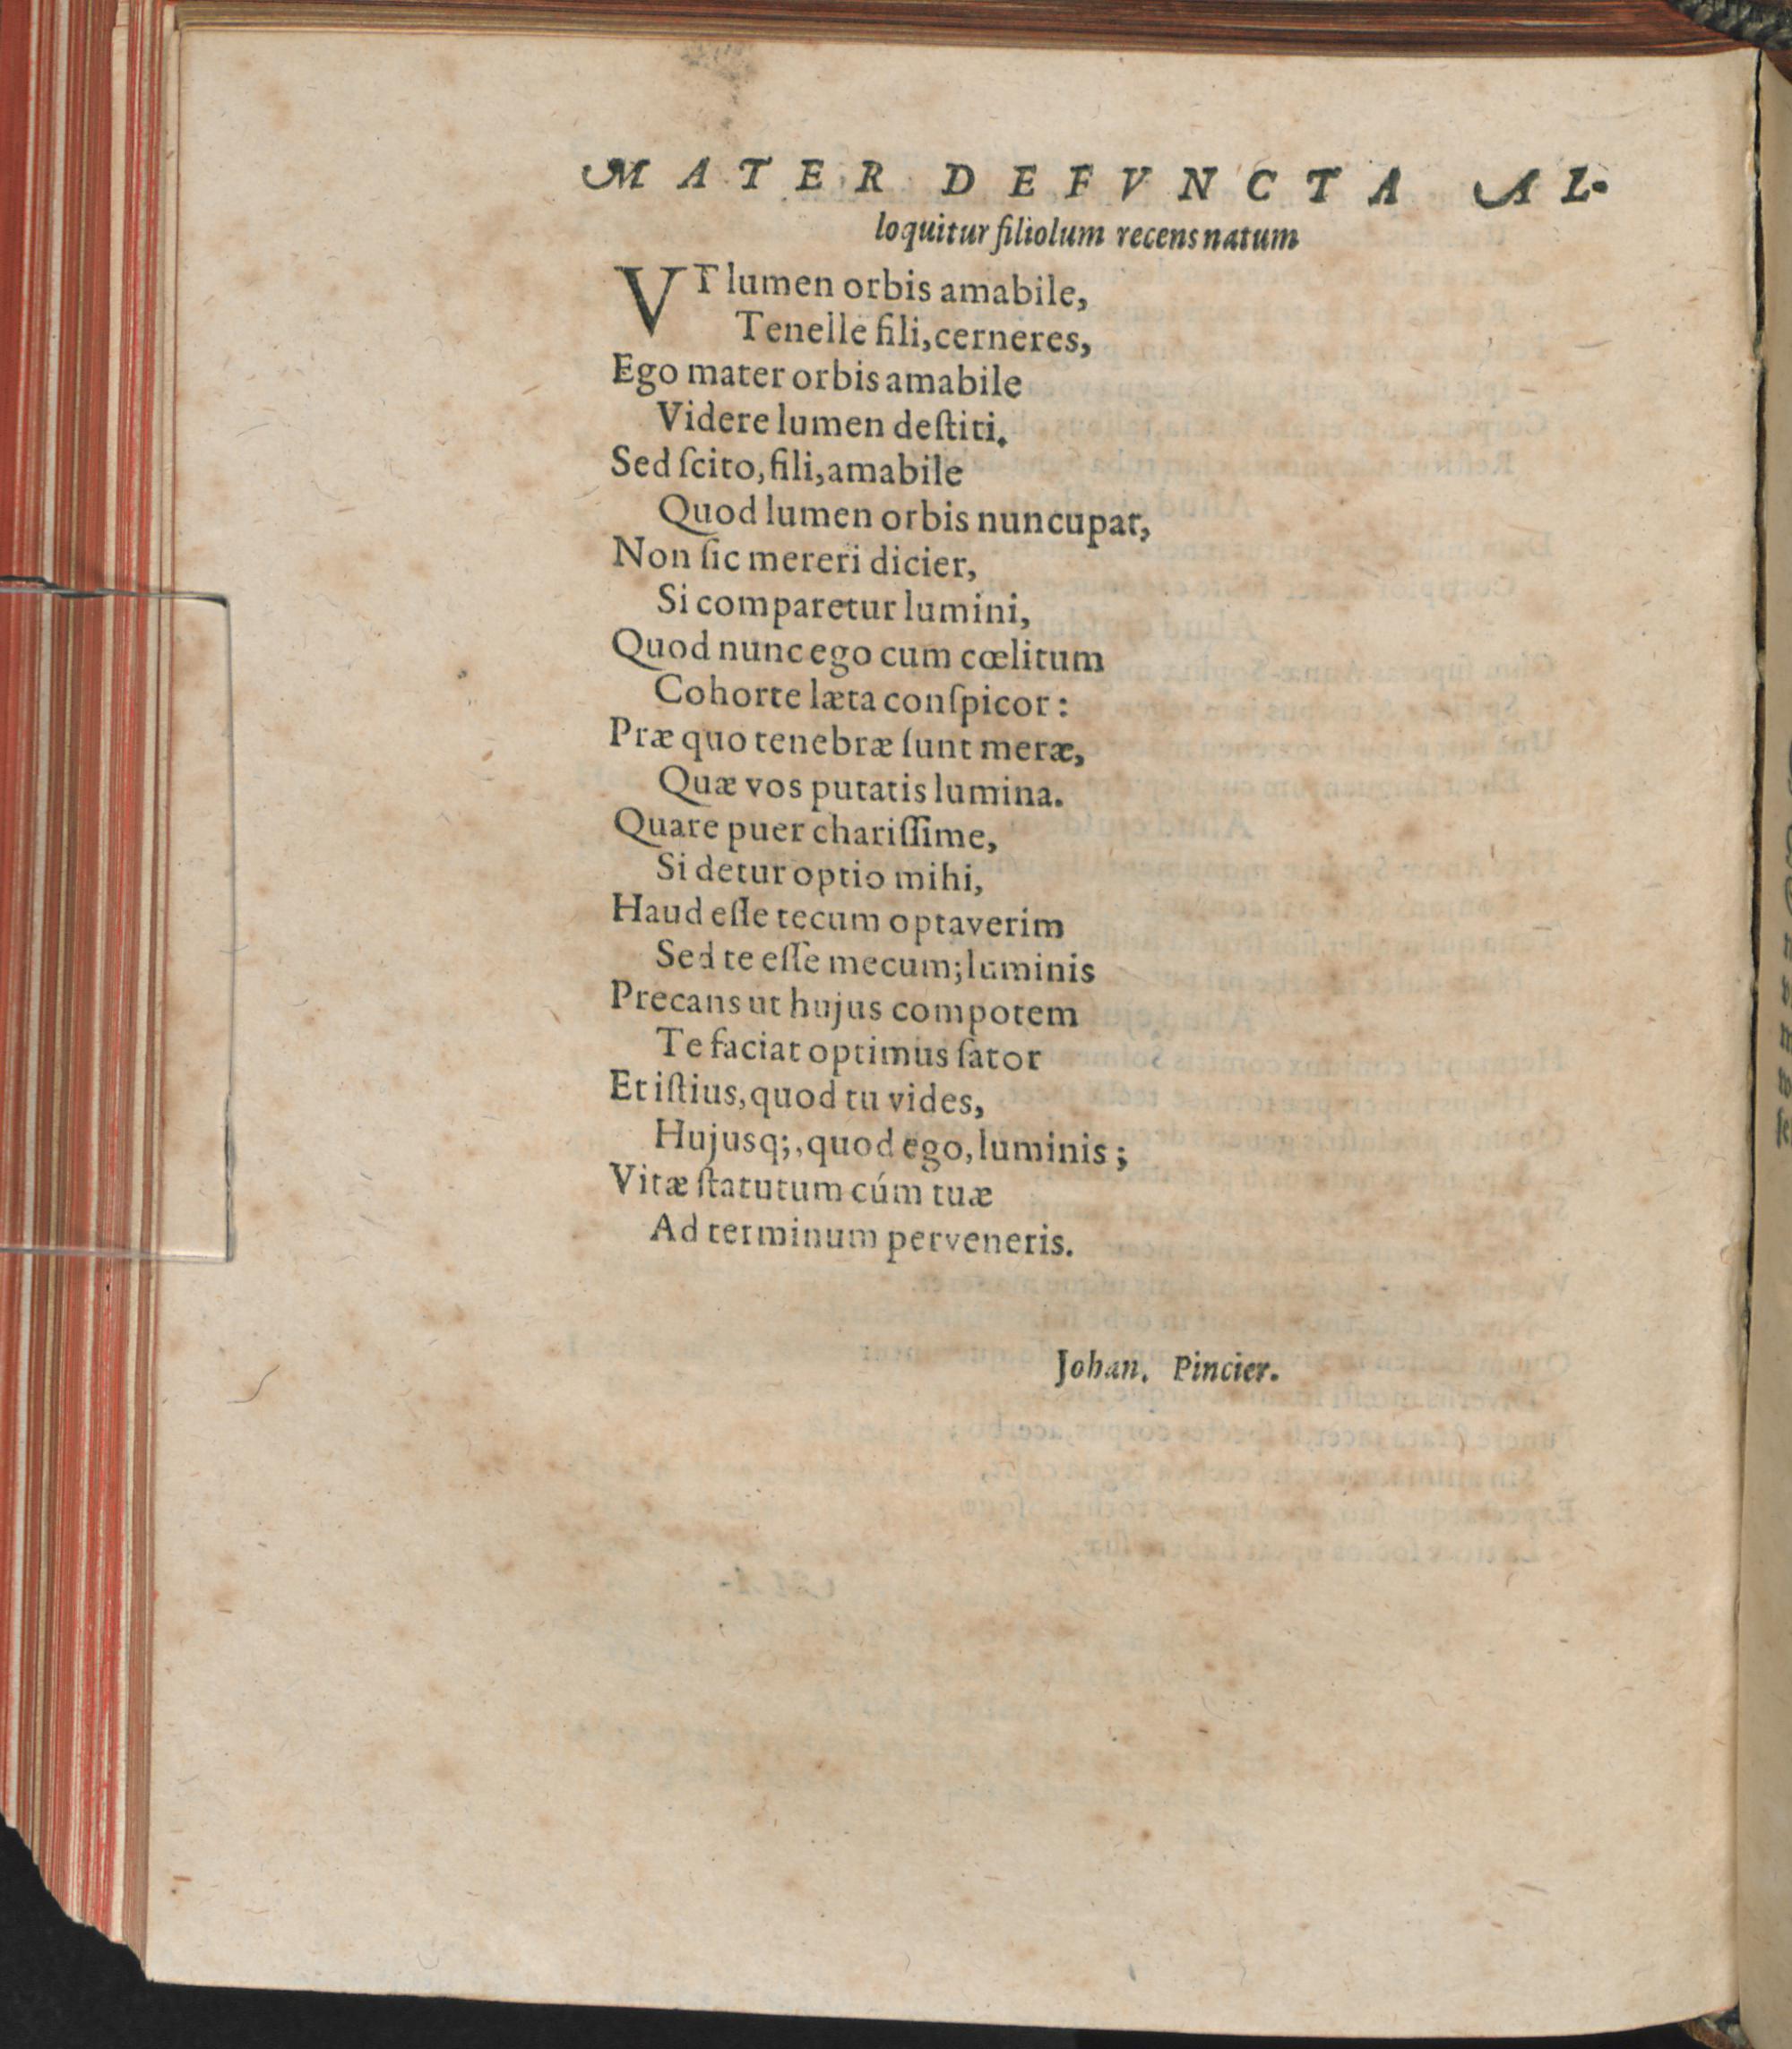 MATER DEFVNCTA AL-
loquitur filiolum recens natum
VT lumen orbis amabile,
Tenelle fili, cerneres,
Ego mater orbis amabile
Videre lumen deſtiti.
Sed ſcito, fili, amabile
Quod lumen orbis nuncupat,
Non ſic mereri dicier,
Si comparetur lumini,
Quod nunc ego cum cœlitum
Cohorte læta conſpicor:
Præ quo tenebræ ſunt meræ,
Quæ vos putatis lumina.
Quare puer chariſſime,
Si detur optio mihi,
Haud eſſe tecum optaverim
Sed te eſſe mecum; luminis
Precans ut hujus compotem
Te faciat optimus ſator
Et iſtius, quod tu vides,
Hujusq;, quod ego, luminis;
Vitæ ſtatutum cúm tuæ
Ad terminum perveneris.
Johan. Pincier.